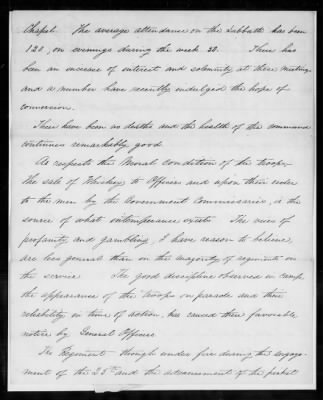 Chapel. The average attendance on the Sabbath has been
120, on evenings during the week 30. There has
been an increase of interest and solemnity at these meetings
and a number have recently indulged the hope of
conversion.
There have been no deaths and the health of the command
continues remarkably good.
As respects the Moral Condition of the troops,
The sale of Whiskey to Officers and upon their order
to the men by the Government Commissaries, is the
source of what intemperance exists. The vices of
profanity and gambling, I have reason to believe,
are less general than in the majority of regiments in
the service. The good discipline observed in camp,
the appearance of the troops on parade and their
reliability in time of action, has caused their favorable
notice by General Officers.
The Regiment though under fire during the engage-
ment of the 25th and the advancement of the picket